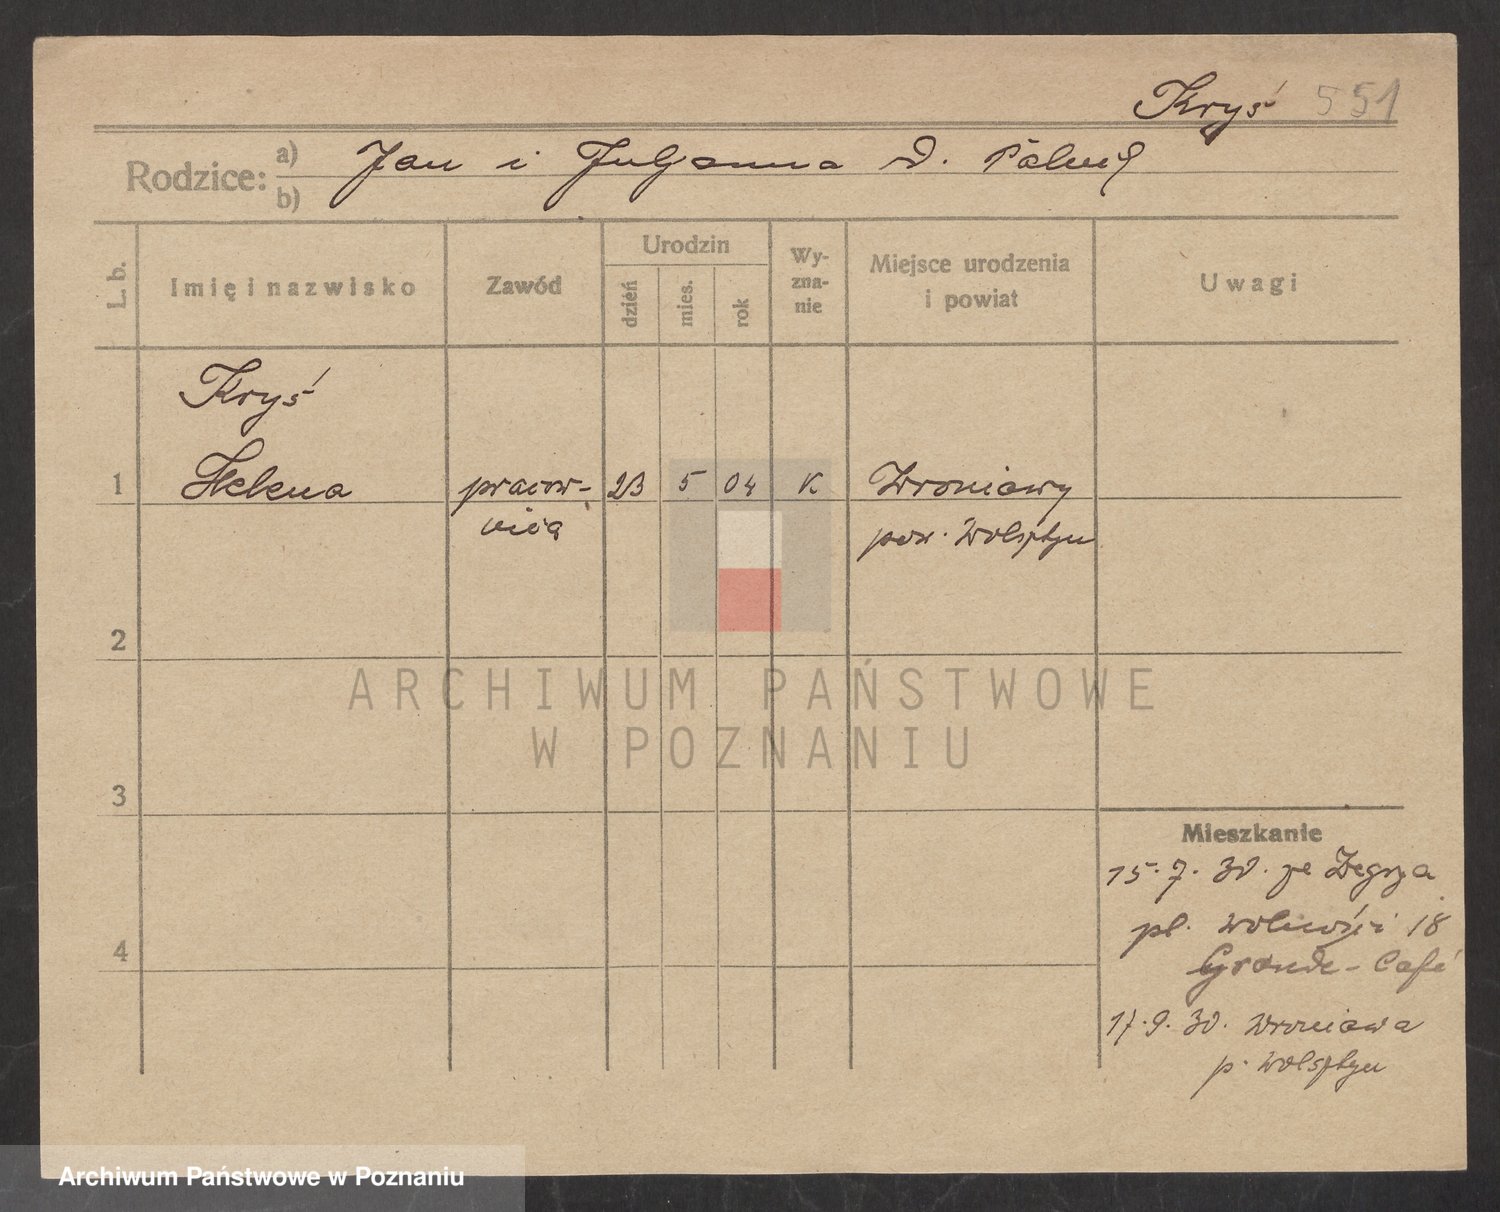 Kryś 551
Rodzice: a) Jan i Juljanna d.
b)
L. b.
Imię i nazwisko
Zawód
Urodzin
dzień
mies.
rok
Wy-
zna-
nie
Miejsce urodzenia
i powiat
Uwagi
Kryś
1 Helena pracow- 23 5 04 K Wroniawy
nica pow. Wolsztyn
2
ARCHIWUM PAŃSTWOWE
W POZNANIU
3
Mieszkanie
15.7.30. ze Zegrza
pl. Wolności 18
4
Grande-Café
17.9.30. Wroniawa
p. Wolsztyn
Archiwum Państwowe w Poznaniu